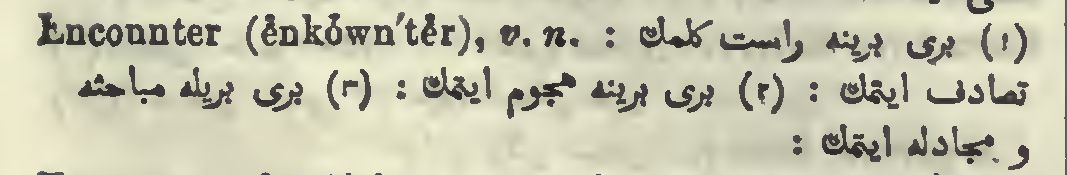 Encounter (ĕnkŏwn'tĕr), v. n. : (۱) بری برینه راست کلمك
تصادف ایتمك : (۲) بری برینه هجوم ایتمك : (۳) بری بریله مباحثه
و مجادله ایتمك :